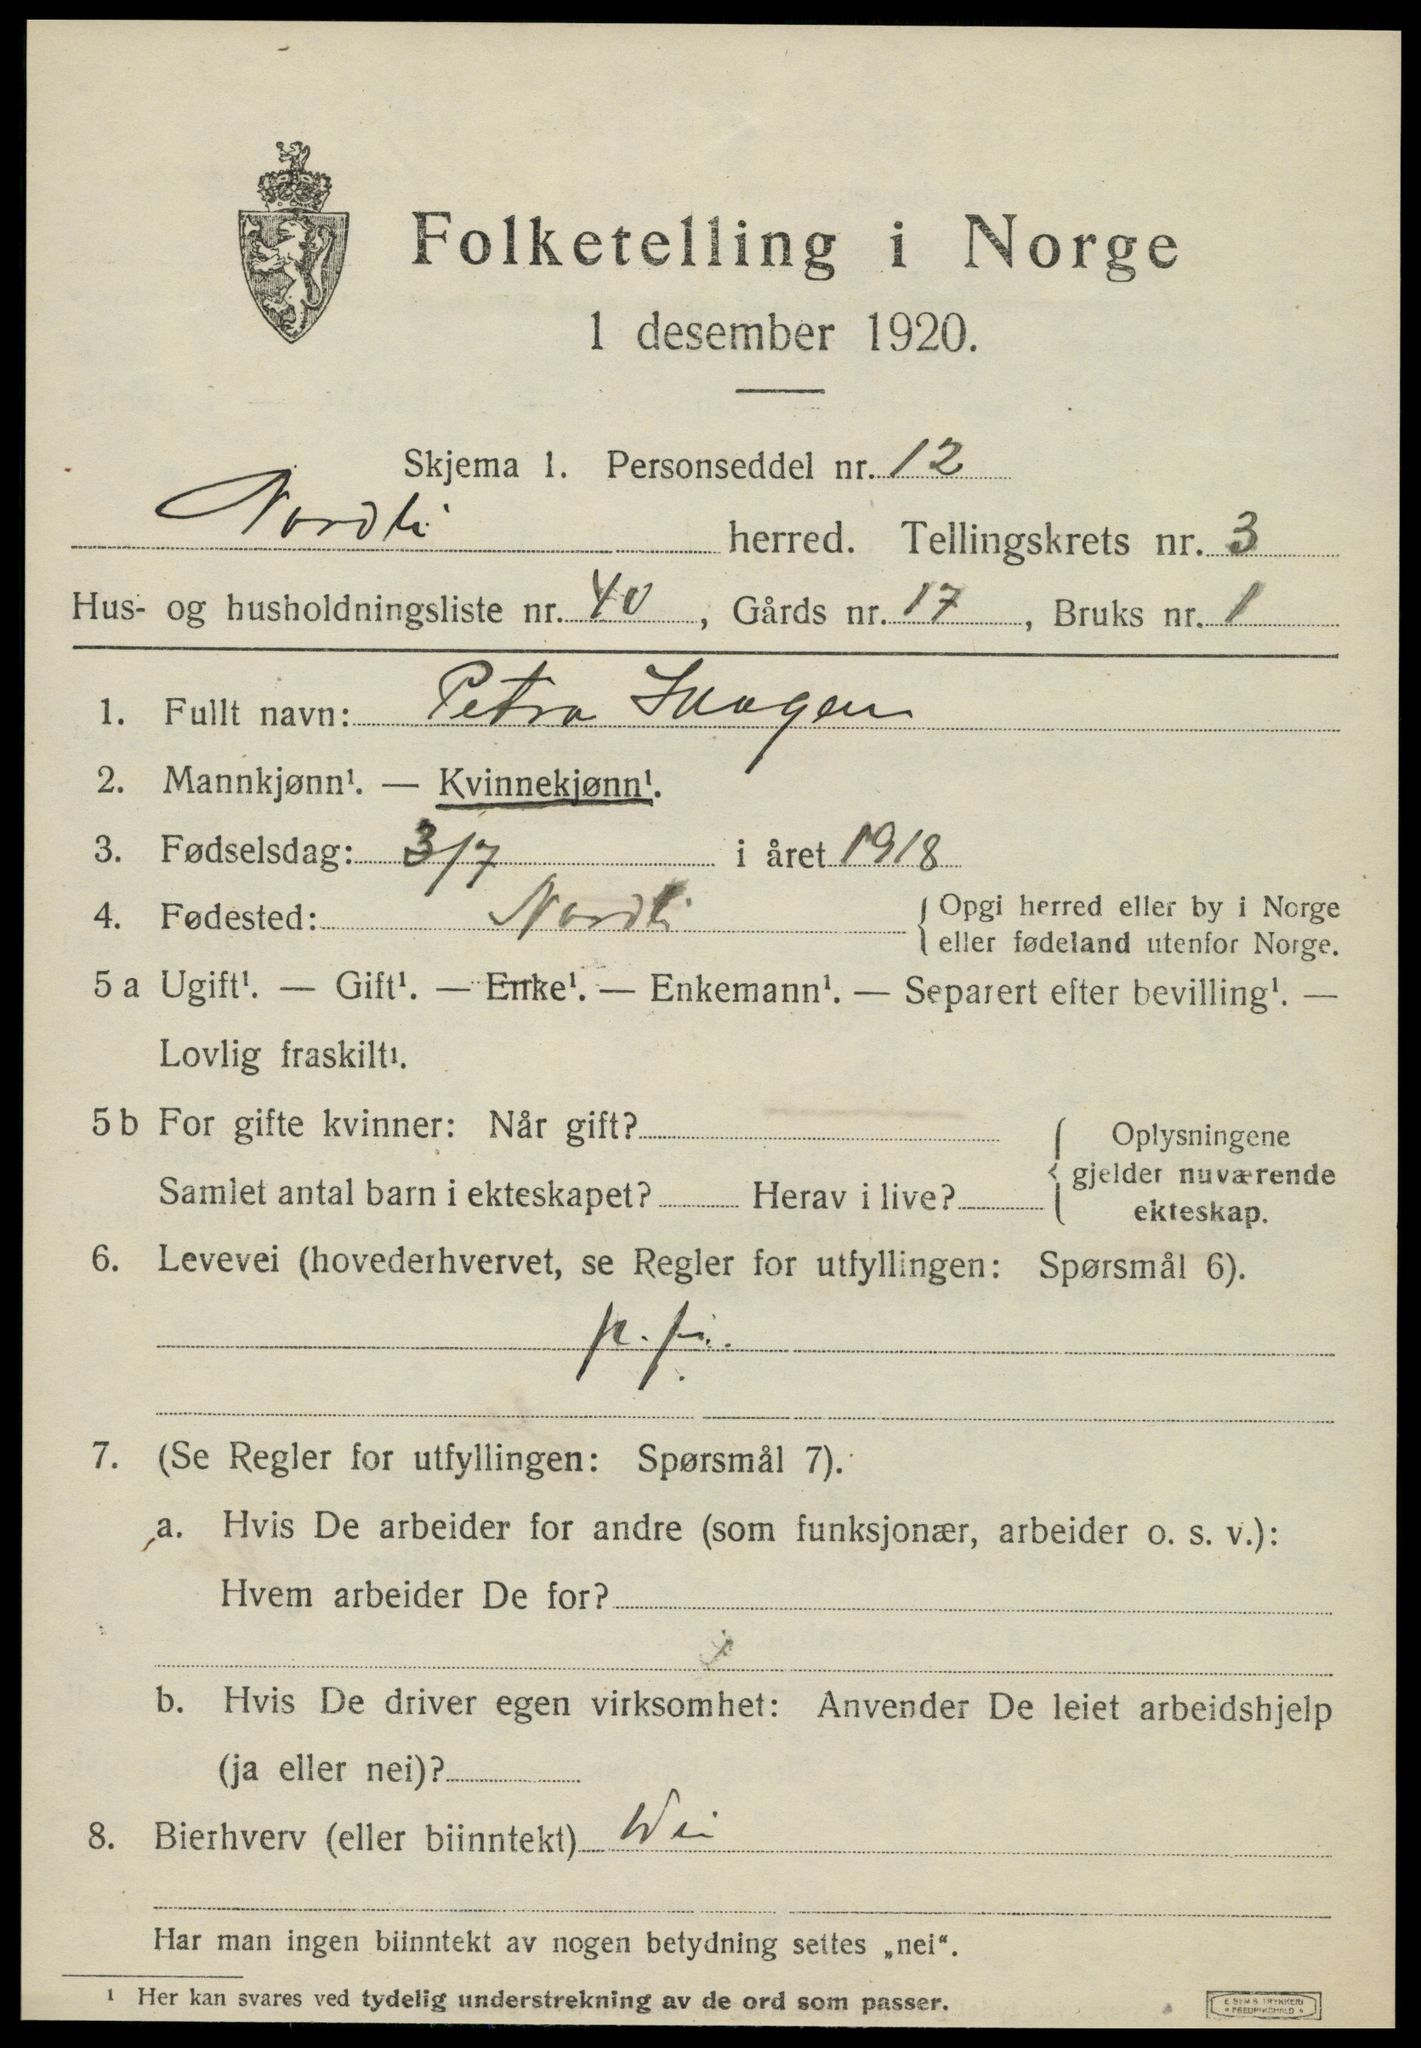 Folketelling i Norge
1 desember 1920.
Skjema 1. Personseddel nr. 12
Nordli herred. Tellingskrets nr. 3
Hus- og husholdningsliste nr. 40, Gårds nr. 17, Bruks nr. 1
1. Fullt navn: Petra
2. Mannkjønn¹. — Kvinnekjønn¹.
3. Fødselsdag: 3/7 i året 1918
4. Fødested: Nordli { Opgi herred eller by i Norge
eller fødeland utenfor Norge.
5 a Ugift¹. — Gift¹. — Enke¹. — Enkemann¹. — Separert efter bevilling¹. —
Lovlig fraskilt¹.
5 b For gifte kvinner: Når gift?
Samlet antal barn i ekteskapet? Herav i live?
{ Oplysningene
gjelder nuværende
ekteskap.
6. Levevei (hovederhvervet, se Regler for utfyllingen: Spørsmål 6).
7. (Se Regler for utfyllingen: Spørsmål 7).
a. Hvis De arbeider for andre (som funksjonær, arbeider o. s. v.):
Hvem arbeider De for?
b. Hvis De driver egen virksomhet: Anvender De leiet arbeidshjelp
(ja eller nei)?
8. Bierhverv (eller biinntekt) Nei
Har man ingen biinntekt av nogen betydning settes „nei“.
¹ Her kan svares ved tydelig understrekning av de ord som passer.